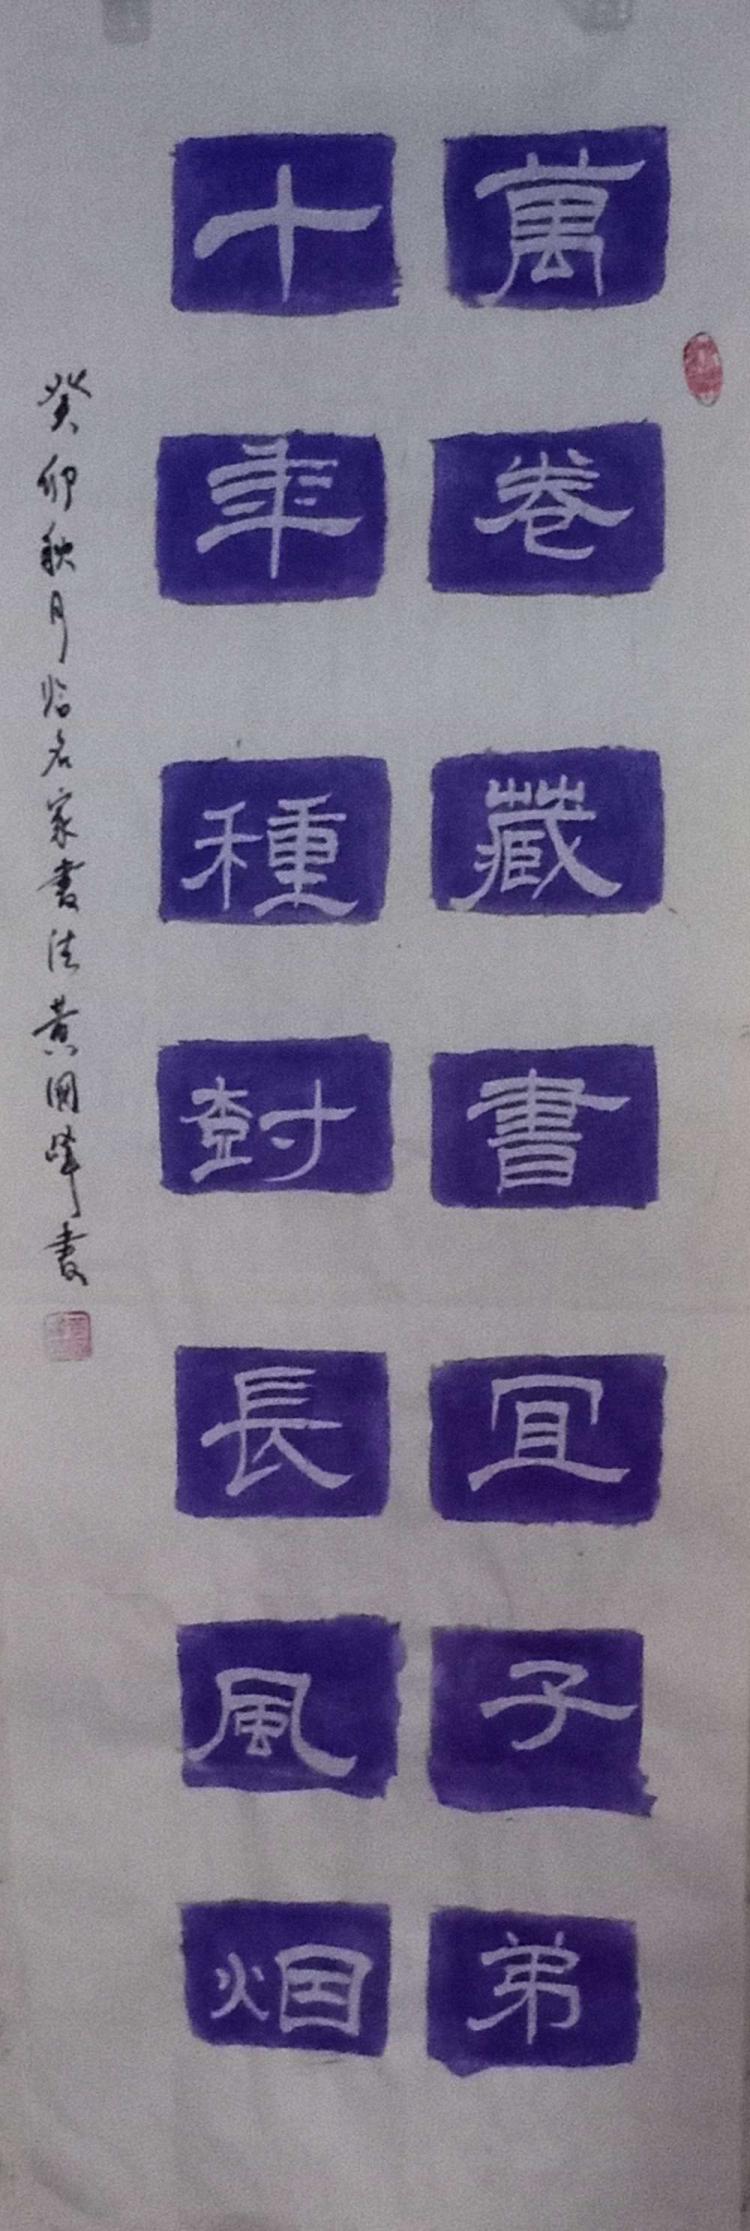 萬卷藏書宜子弟
十年種封長風烟
癸卯秋月临名家書法黄國峰書